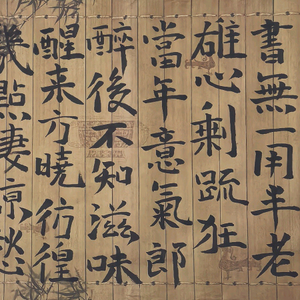 書無一用半老
雄心剩疏狂
當年意氣郎
醉後不知滋味
醒来方曉彷徨
幾點淒涼愁